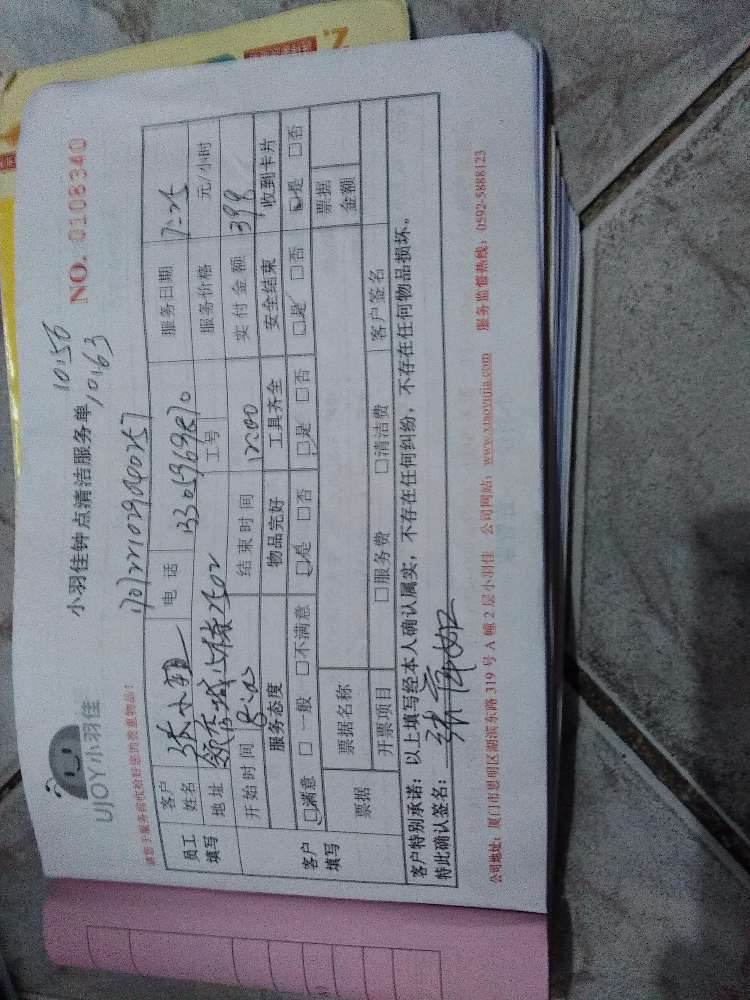 UJOY小羽佳
小羽佳钟点清洁服务单
10:50
10163
NO. 0108340
请您于服务前收捡好您的贵重物品!
员工填写 客户姓名 张小姐 电话 服务日期 7.25
地址 工号 服务价格 元/小时
开始时间 8:00 结束时间 12:00 实付金额 398
客户填写 服务态度 物品完好 工具齐全 安全结束 收到卡片
□满意 □一般 □不满意 □是 □否 □是 □否 □是 □否 □是 □否
票据 票据名称 票据金额
开票项目 □服务费 □清洁费 客户签名
客户特别承诺:以上填写经本人确认属实,不存在任何纠纷,不存在任何物品损坏。
特此确认签名:
公司地址:厦门市思明区湖滨东路 319 号 A 幢 2 层小羽佳 公司网站:www.xiaoyujia.com 服务监督热线:0592-5888123